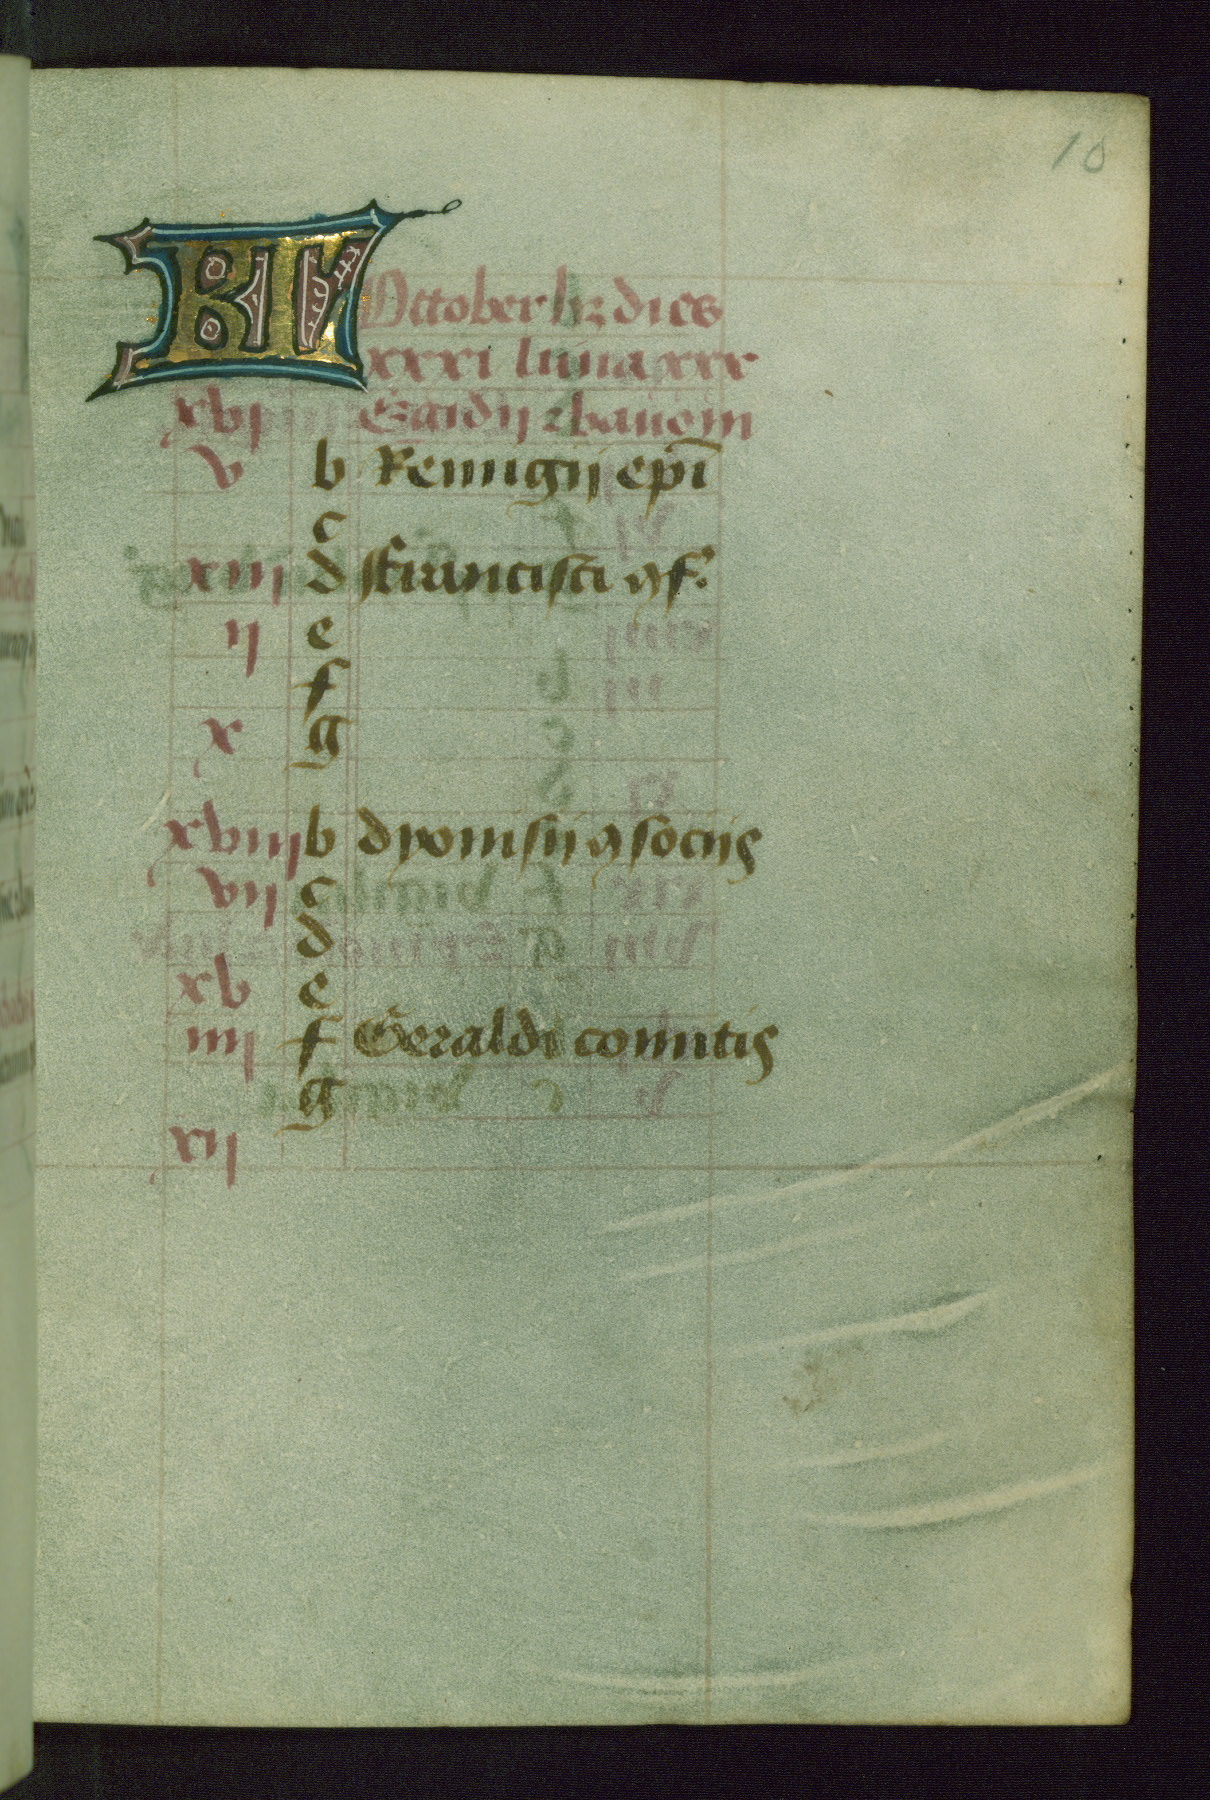 10
KL Octtober hz dies
xxxi luna xxx
xvi
v b Remigij epi
c
xiij d ffrancisci 9f.
ij e
f
x g
xviij b dyonisij 9 socijs
vij c
d
xv e
iiij f Geraldi comitis
g
xij